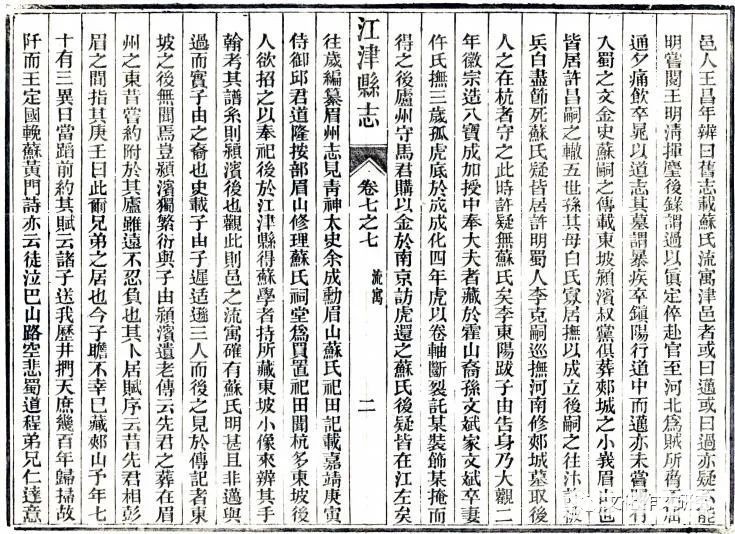 邑人王昌年辨曰舊志載蘇氏流寓津邑者或曰邁或曰過亦疑不能
明嘗閱王明淸揮麈後錄謂過以眞定倅赴官至河北爲賊所脅不屈
通夕痛飲卒晁以道志其墓謂暴疾卒鎮陽行道中而邁亦未嘗有
入蜀之文金史蘇嗣之傳載東坡潁濱叔黨俱葬郟城之小峩眉山也
皆居許昌嗣之轍五世孫其母白氏寡居撫以成立後嗣之往汴被
兵白盡節死蘇氏疑皆居許明蜀人李克嗣巡撫河南修郟城墓取後
人之在杭者守之此時許疑無蘇氏矣李東陽跋子由告身乃大觀二
年徽宗造八寶成加授中奉大夫者藏於霍山裔孫文斌家文斌卒妻
仵氏撫三歲孤虎底於成成化四年虎以卷軸斷裂託某裝飾某掩而
得之後廬州守馬君購以金於南京訪虎還之蘇氏後疑皆在江左矣
江津縣志 卷七之七 流寓 二
往歲編纂眉州志見靑神太史余成勳眉山蘇氏祀田記載嘉靖庚寅
侍御邱君道隆按部眉山修理蘇氏祠堂爲買置祀田聞杭多東坡後
人欲招之以奉祀後於江津縣得蘇學者持所藏東坡小像來辨其手
翰考其譜系則潁濱後也觀此則邑之流寓確有蘇氏明甚且非邁與
過而實子由之裔也史載子由子遲适遜三人而後之見於傳記者東
坡之後無聞焉豈潁濱獨繁衍與子由潁濱遺老傳云先君之葬在眉
州之東昔嘗約附於其廬雖遠不忍負也其卜居賦序云昔先君相彭
眉之間指其庚壬曰此爾兄弟之居也今子瞻不幸已藏郟山予年七
十有三異日當蹈前約其賦云諸子送我歷井捫天庶幾百年歸掃故
阡而王定國輓蘇黃門詩亦云徒泣巴山路空悲蜀道程弟兄仁達意